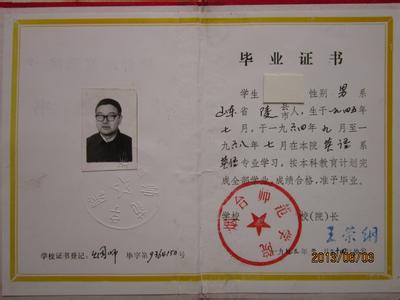 毕业证书
学生 性别 男 系
山东省陵县市人，生于一九四五年
七月，于一九六四年九月至
一九六八年七月在本院英语系
英语专业学习，按本科教育计划完
成全部学业，成绩合格，准予毕业。
学校 校(院)长
烟台师范学院
学校证书登记: 毕字第
2013/06/03